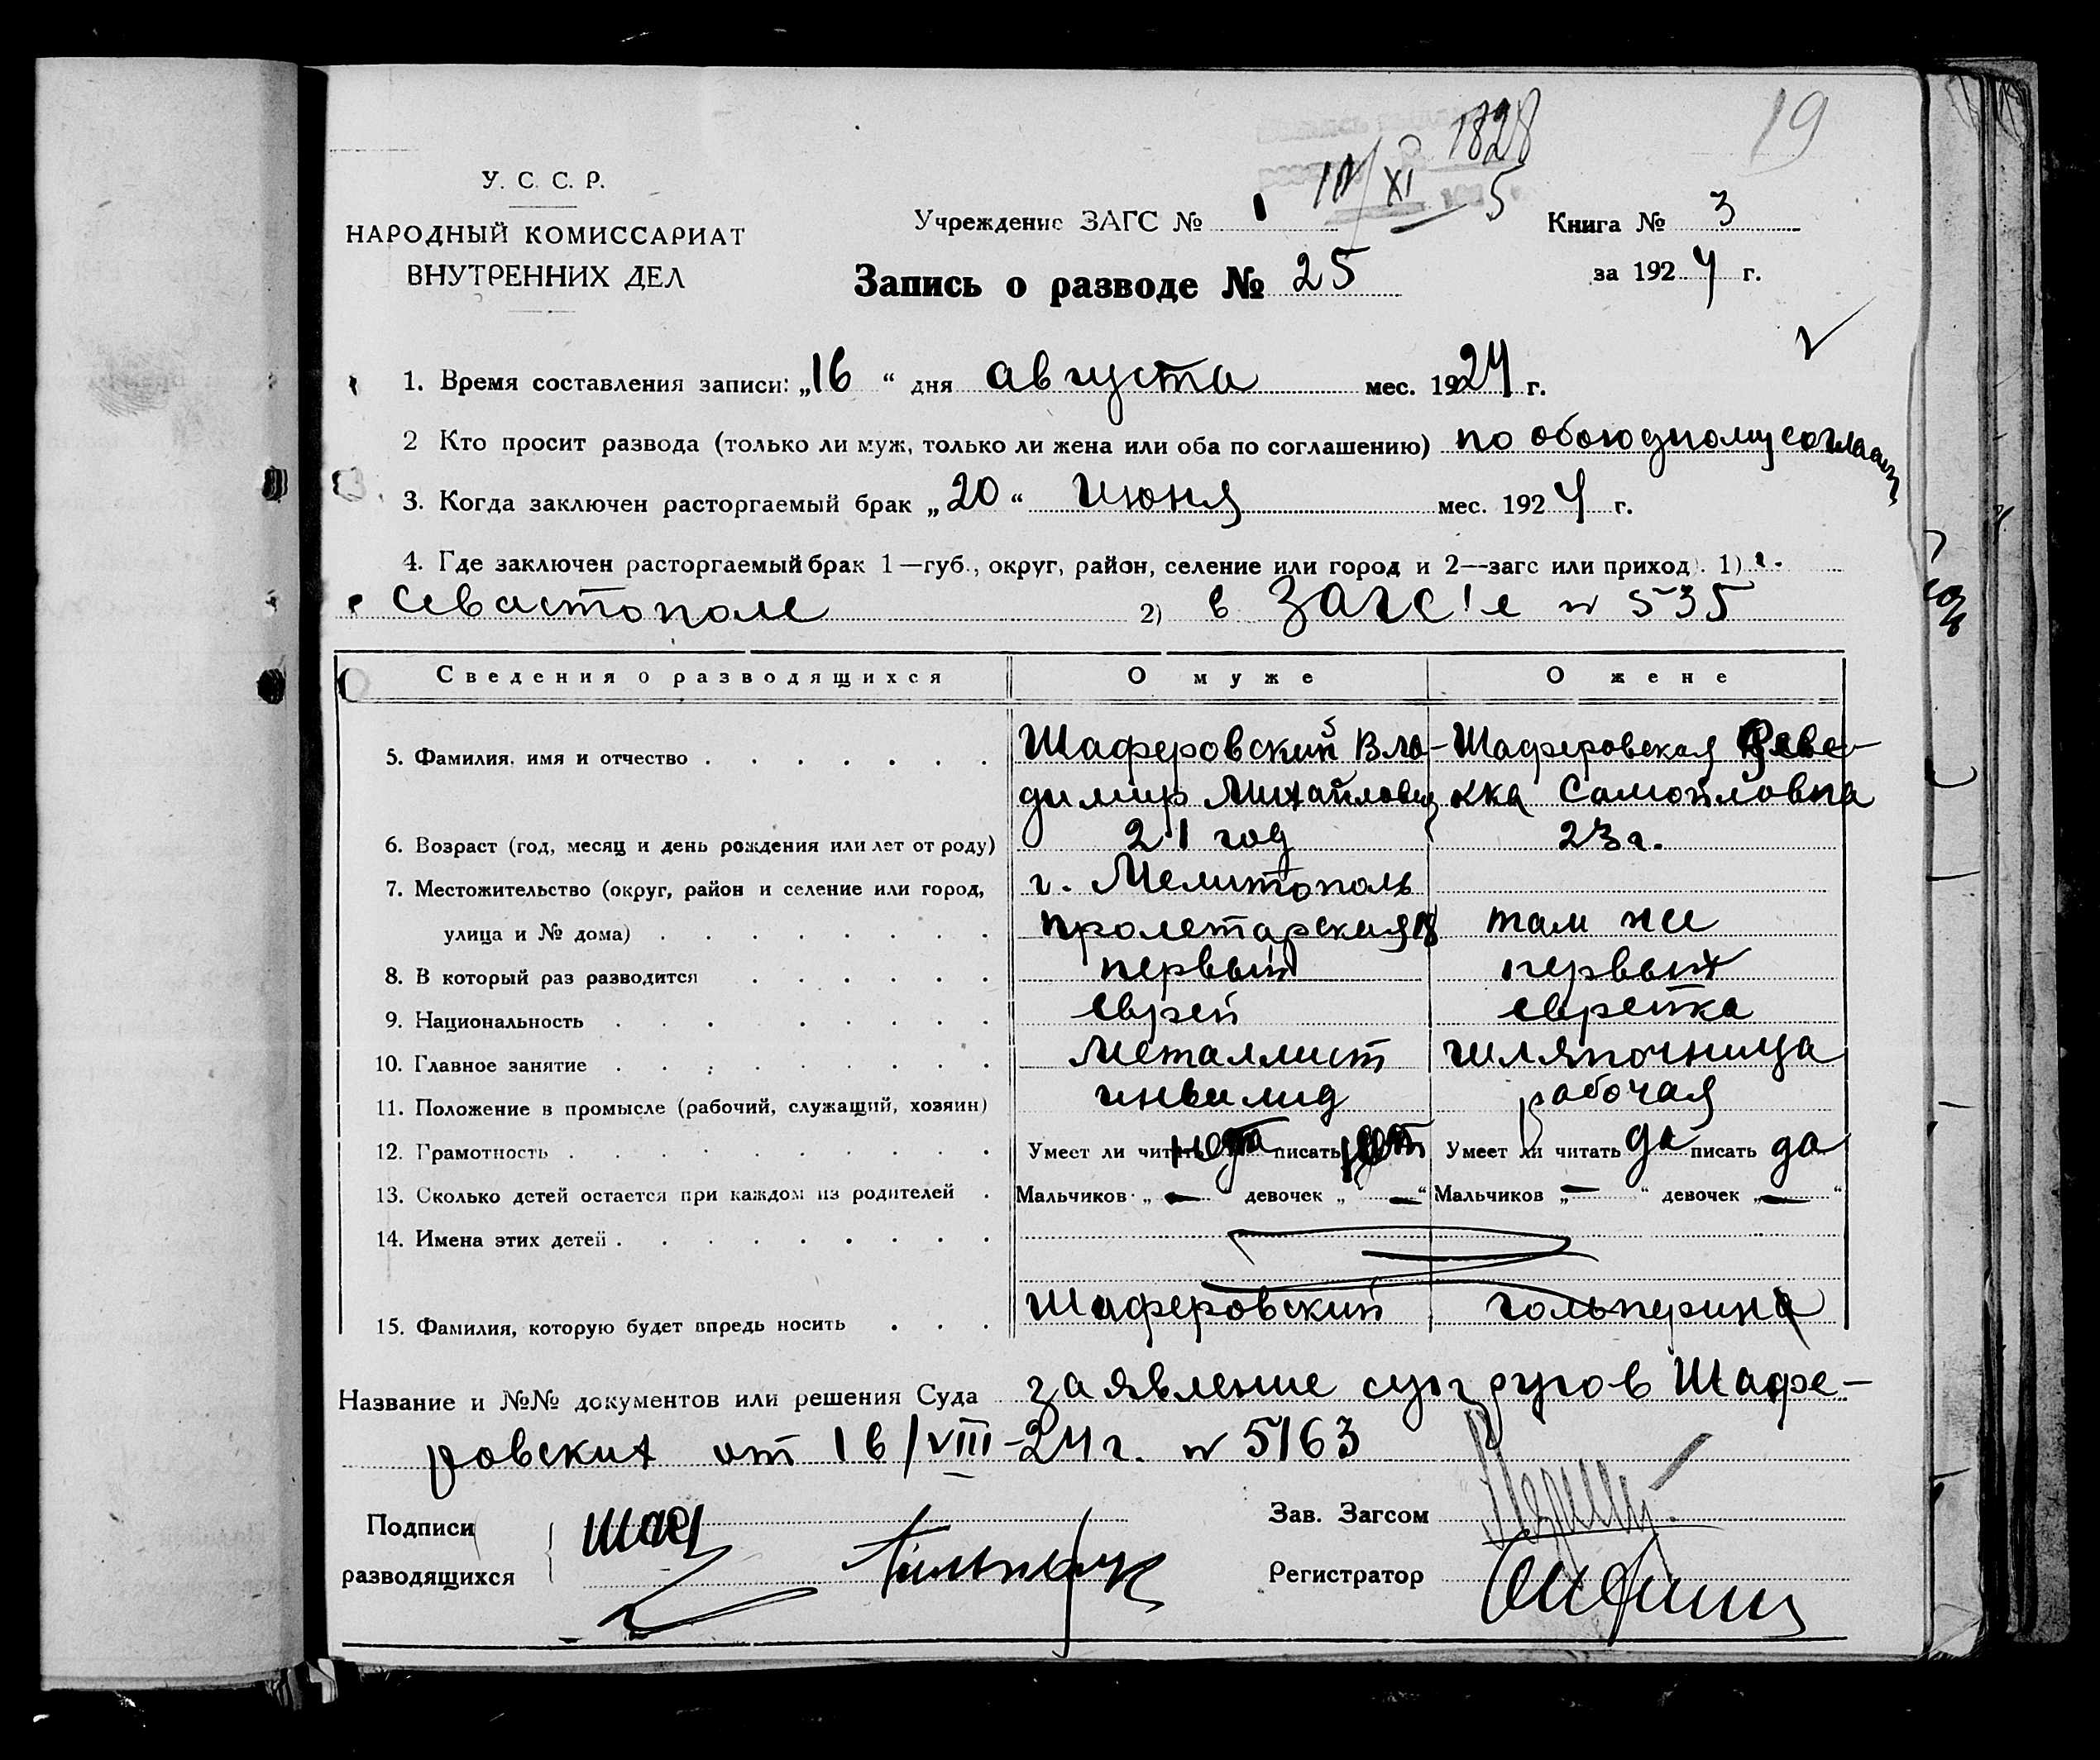 19
1828
10/XI 5
У. С. С. Р.
НАРОДНЫЙ КОМИССАРИАТ
ВНУТРЕННИХ ДЕЛ
Учреждение ЗАГС № 1
Книга № 3
Запись о разводе № 25
за 1924 г.
1. Время составления записи: „16“ дня августа мес. 1924 г.
2 Кто просит развода (только ли муж, только ли жена или оба по соглашению) по обоюдному соглаш
3. Когда заключен расторгаемый брак „20“ июня мес. 1924 г.
4. Где заключен расторгаемый брак 1—губ., округ, район, селение или город и 2—загс или приход). 1) г.
Севастополе 2) в ЗАГС'е № 535
Сведения о разводящихся О муже О жене
5. Фамилия, имя и отчество Шаферовский Вла- Шаферовская Реве-
димир Михайлович кка Самойловна
6. Возраст (год, месяц и день рождения или лет от роду) 21 год 23 г.
7. Местожительство (округ, район и селение или город, г. Мелитополь
улица и № дома) пролетарская 18 там же
8. В который раз разводится первый первый
9. Национальность еврей еврейка
10. Главное занятие металлист шляпочница
11. Положение в промысле (рабочий, служащий, хозяин) инвалид рабочая
12. Грамотность Умеет ли читать да писать Умеет ли читать да писать да
13. Сколько детей остается при каждом из родителей Мальчиков „—“ девочек „—“ Мальчиков „—“ девочек „—“
14. Имена этих детей
15. Фамилия, которую будет впредь носить Шаферовский Гольперина
Название и №№ документов или решения Суда заявление супругов Шафе-
ровских от 16/VIII-24 г. № 5163
Подписи Шаф
разводящихся
Зав. Загсом
Регистратор